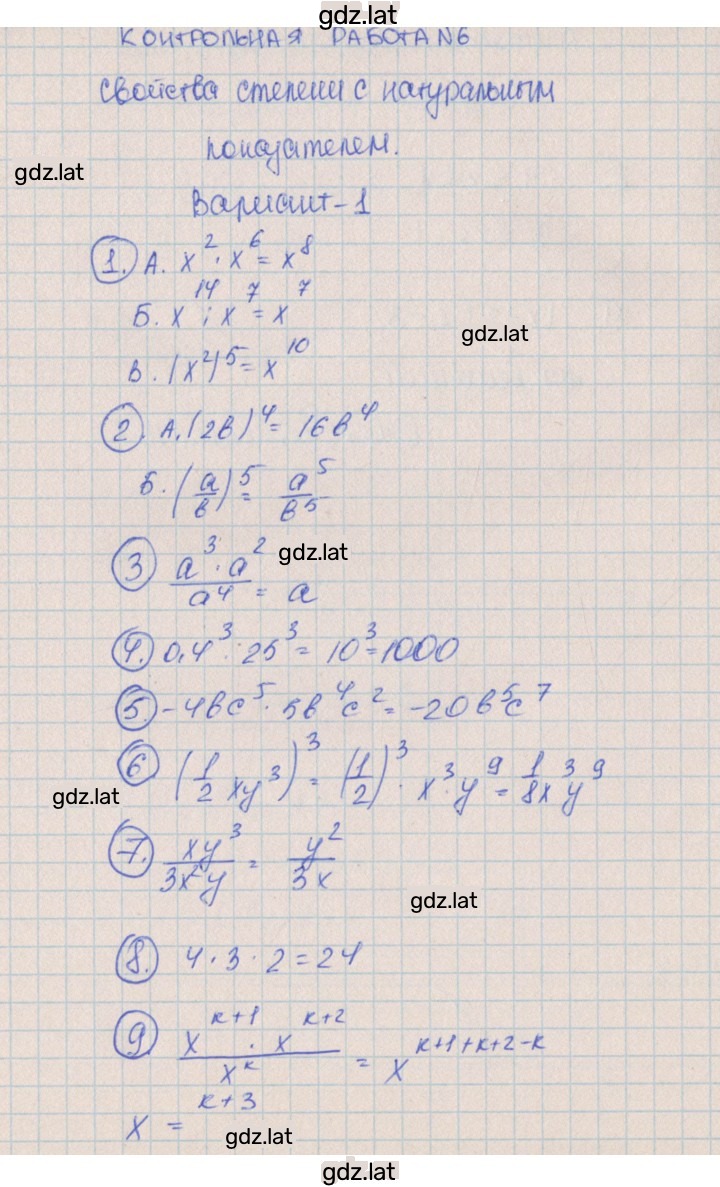 gdz.lat
КОНТРОЛЬНАЯ РАБОТА N6
Свойства степени с натуральным
показателем.
gdz.lat
Вариант-1
1. А. x² · x⁶ = x⁸
Б. x¹⁴ : x⁷ = x⁷
gdz.lat
В. (x²)⁵ = x¹⁰
2. А. (2в)⁴ = 16в⁴
Б. (a/в)⁵ = a⁵/в⁵
gdz.lat
3 (a³ · a²)/a⁴ = a
4. 0,4³ · 25³ = 10³ = 1000
5. -4вc⁵ · 5в⁴c² = -20в⁵c⁷
6 (1/2 xy³)³ = (1/2)³ · x³ · y⁹ = 1/8 x³y⁹
gdz.lat
7. xy³/3x²y = y²/3x
gdz.lat
8. 4 · 3 · 2 = 24
9 (x^(к+1) · x^(к+2))/x^к = x^(к+1+к+2-к)
x = ^(к+3)
gdz.lat
gdz.lat